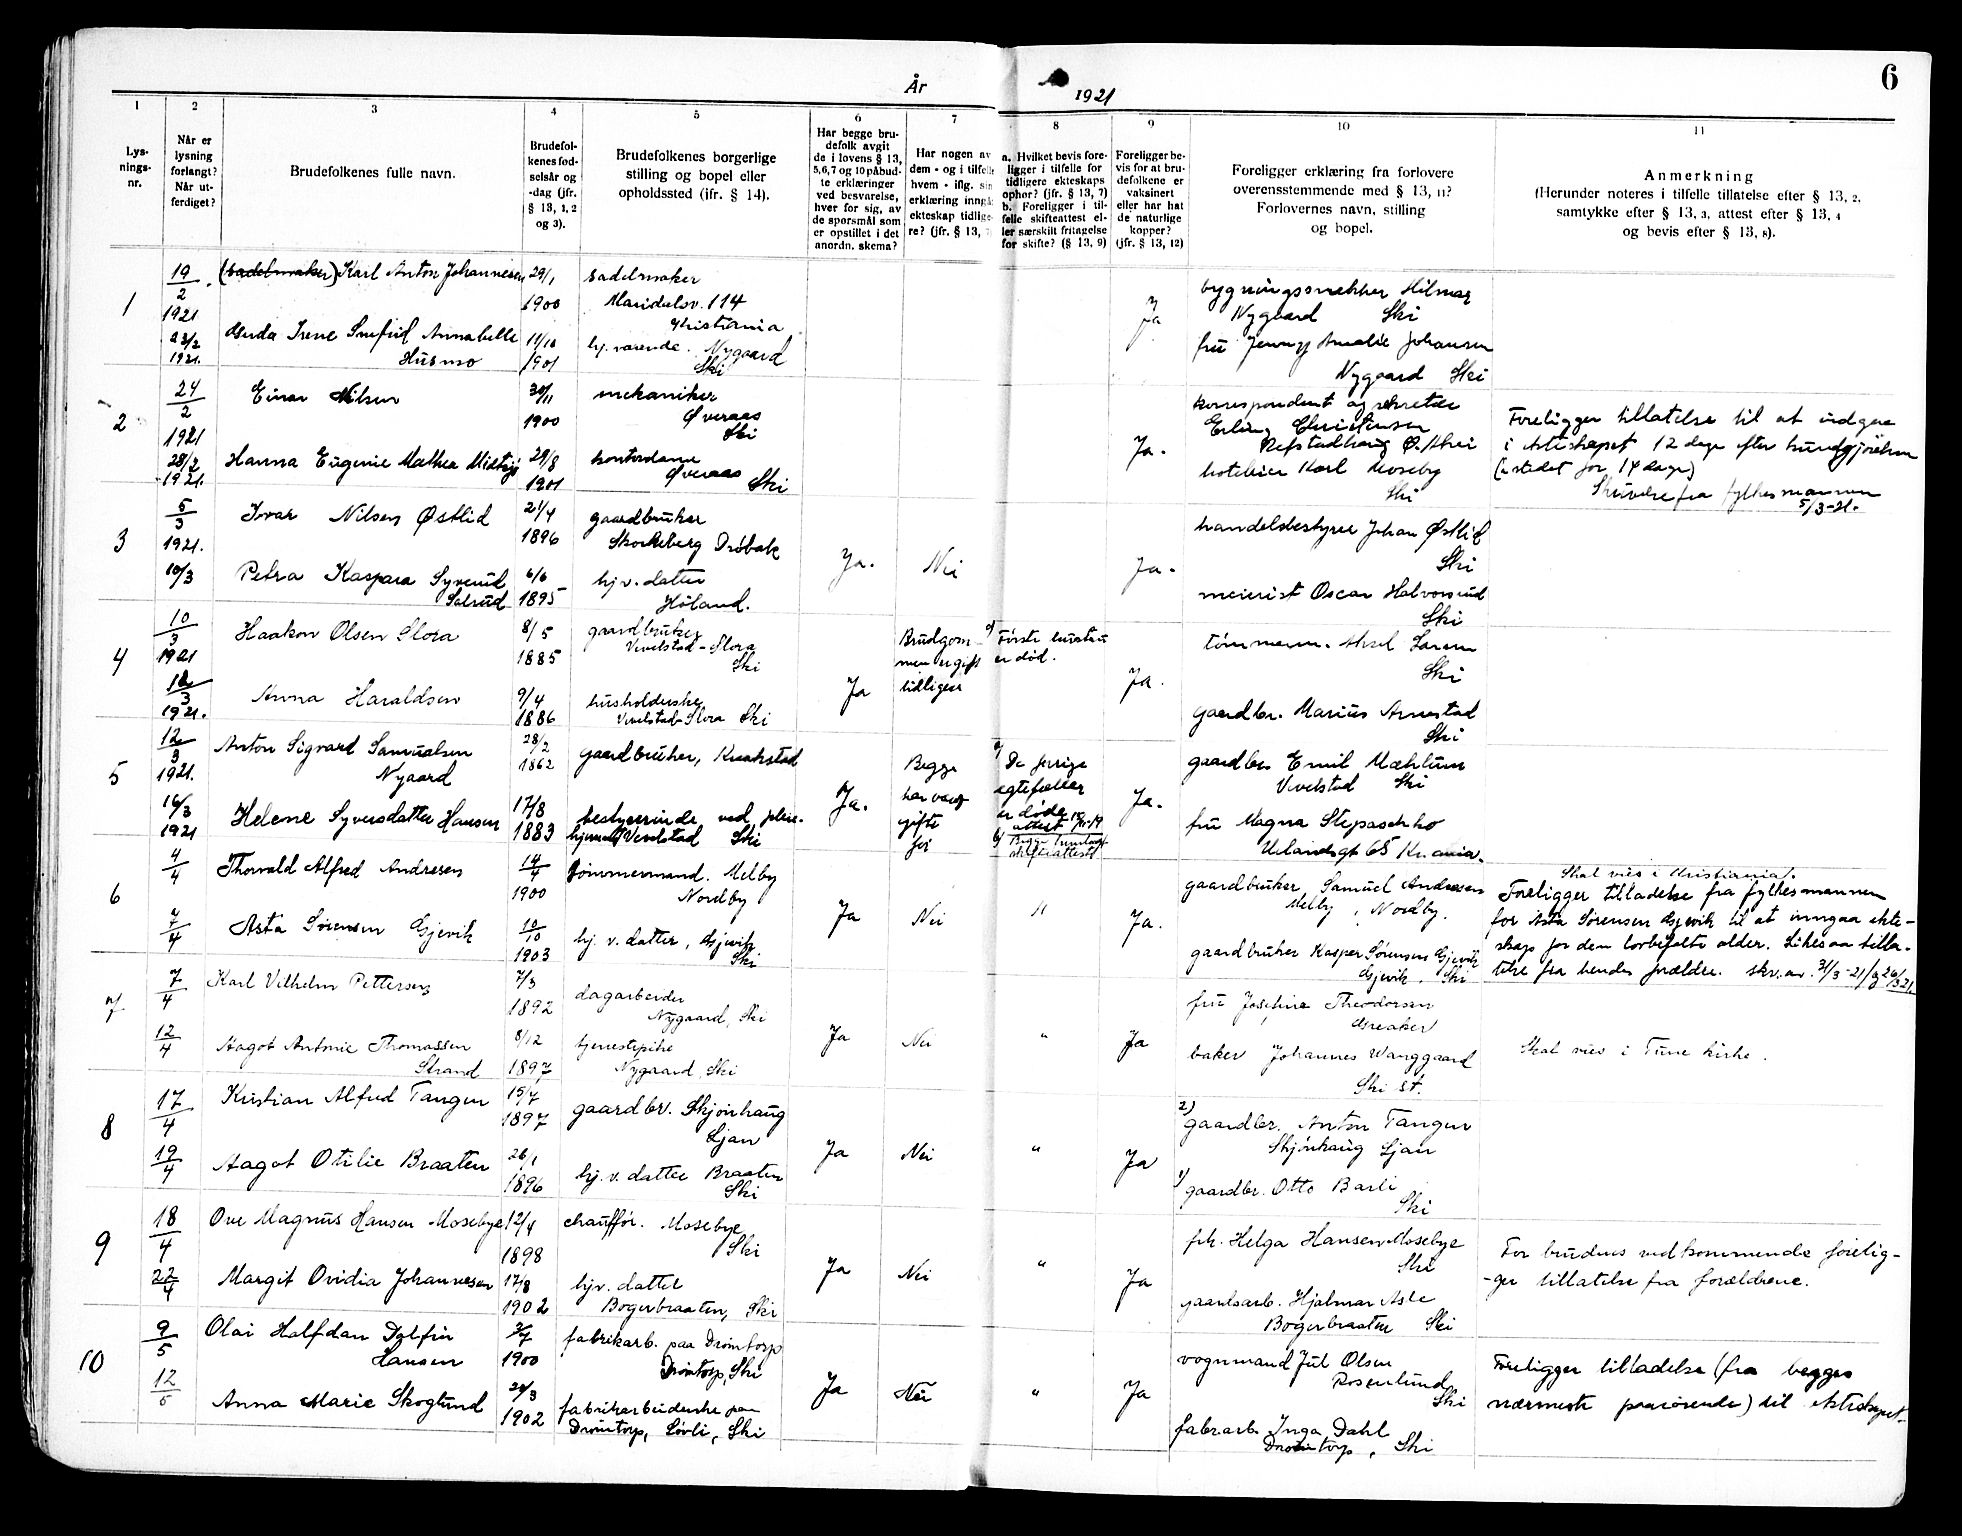 6
År 1921
1
2
3
4
5
6
7
8
9
10
11
Lys-
nings-
nr.
Når er
lysning
forlangt?
Når ut-
ferdiget?
Brudefolkenes fulle navn.
Brudefol-
kenes fød-
selsår og
-dag (jfr.
§ 13, 1, 2
og 3).
Brudefolkenes borgerlige
stilling og bopel eller
opholdssted (ifr. § 14).
Har begge bru-
defolk avgit
de i lovens § 13,
5,6,7 og 10 påbud-
te erklæringer
ved besvarelse,
hver for sig, av
de spørsmål som
er opstillet i det
anordn. skema?
Har nogen av
dem - og i tilfelle
hvem - iflg. sin
erklæring inngå
ekteskap tidlige-
re? (jfr. § 13,
a. Hvilket bevis fore-
ligger i tilfelle for
tidligere ekteskaps
ophør? (jfr. § 13, 7)
b. Foreligger i til-
felle skifteattest el-
ler særskilt fritagelse
for skifte? (§ 13, 9)
Foreligger be-
vis for at bru-
defolkene er
vaksinert
eller har hat
de naturlige
kopper?
(jfr. § 13, 12)
Foreligger erklæring fra forlovere
overensstemmende med § 13, 11?
Forlovernes navn, stilling
og bopel.
Anmerkning
(Herunder noteres i tilfelle tillatelse efter § 13, 2,
samtykke efter § 13, 3, attest efter § 13, 4
og bevis efter § 13, 8).
1
19/2
1921
23/2
1921.
(sadelmaker) Karl Anton Johannesen
Gerda Irene Snefrid Annabelle
Husmo
29/1
1900
11/10
1901
sadelmaker
Maridalsv. 114
Kristiania
hj. værende. Nygaard
Ski
Ja
bygningssnekker Hilmar
Nygaard Ski
fru Jenny Amalie Johansen
Nygaard Ski
2
24/2
1921
28/2
1921.
Einar Nilsen
Hanna Eugenie Mathea
30/11
1900
29/8
1901
mekaniker
Øveraas
Ski
kontordame
Øveraas
Ski
Ja.
korrespondent og sekretær
Erling Christensen
Refstadhaug Ø. Aker
hoteleier Karl Moseby
Ski
Foreligger tillatelse til at indgaa
i ekteskapet 12 dage efter kundgjørelsen
(istedet for 14 dage)
Skrivelse fra fylkesmannen
5/3-21.
3
5/3
1921.
10/3
Ivar Nilsen Østlid
Petra Kaspara Syverud
21/4
1896
6/6
1895
gaardbruker
Skorkeberg Drøbak
hj. v. datter
Høland.
Ja.
Nei
Ja.
handelsbestyrer Johan Østlid
Ski
meierist Oscar Halvorsrud
Ski
4
10/3
1921
12/3
1921.
Haakon Olsen Slora
Anna Haraldsen
8/5
1885
9/4
1886
gaardbruker
Vevelstad-Slora
Ski
husholderske
Vevelstad-Slora Ski
Ja
Brudgom-
men er gift
tidligere
a) Første hustru
er død.
Ja.
tømmerm. Aksel Larsen
Ski
gaardbr. Marius Arnestad
Ski
5
12/3
1921.
16/3
1921
Anton Sigvard Samuelsen
Nygaard
Helene Syversdatter Hansen
28/2
1862
17/8
1883
gaardbruker, Kraakstad
bestyrerinde ved pleie-
hjemmet Vevelstad Ski
Ja.
Begge
har været
gifte
før
a) De forrige
egtefæller
er døde
Ja.
gaardbr. Emil Mæhlum
Vevelstad Ski
fru Magna Stepaschko
Uelandsgt 65 Kr.ania.
6
4/4
7/4
Thorvald Alfred Andresen
Asta Sørensen Gjevik
14/4
1900
10/10
1903
tømmermand. Melby
Nordby
hj. v. datter, Gjevik
Ski
Ja
Nei
"
Ja.
gaardbruker Samuel Andresen
Melby, Nordby.
gaardbruker Kasper Sørensen Gjevik
Gjevik, Ski
Skal vies i Kristiania.
Foreligger tilladelse fra fylkesmannen
for Asta Sørensen Gjevik til at inngaa ekte-
skap før den lovbefalte alder. Likesaa tilla-
telse fra hendes forældre. skr. av. 31/3-21
7
7/4
12/4
Karl Vilhelm Pettersen
Aagot Antonie Thomassen
Strand
7/3
1892
8/12
1897
dagarbeider
Nygaard, Ski
tjenestepike
Nygaard, Ski
Ja
Nei
"
Ja
fru Josefine Theodorsen
Greaker
baker Johannes Wanggaard
Ski st.
Skal vies i Tune kirke.
8
17/4
19/4
Kristian Alfred Tangen
Aagot Otilie Braaten
15/7
1897
26/1
1896
gaardbr. Skjønhaug
Ljan
hj. v. datter Braaten
Ski
Ja
Nei
"
Ja
2) gaardbr. Anton Tangen
Skjønhaug Ljan
1) gaardbr. Otto Barli
Ski
9
18/4
22/4
Ove Magnus Hansen Mosebye
Margit Ovidia Johannesen
12/4
1898
17/8
1902
chauffør. Mosebye
Ski
hjv. datter
Bøgerbraaten, Ski
Ja
Nei
"
Ja
frk. Helga Hansen Mosebye
Ski
gaardsarb. Hjalmar Asle
Bøgerbraaten Ski
For brudens vedkommende forelig-
-ger tillatelse fra forældrene.
10
9/5
12/5
Olai Halfdan Dolfin
Hansen
Anna Marie Skoglund
1900
1902
fabrikarb. paa Drømtorp
Drømtorp, Ski
fabrikarbeiderske paa
Drømtorp, Løvli, Ski
Ja
Nei
"
Ja
vognmand Jul Olsen
Rosenlund
Ski
fabr.arb. Inga Dahl
Drømtorp, Ski
Foreligger tilladelse (fra begges
nærmeste paarørende) til ekteskapet.